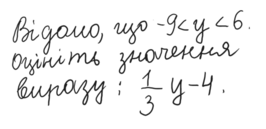 Відомо, що -9<y<6.
оцініть значення
виразу: 1/3 y-4.